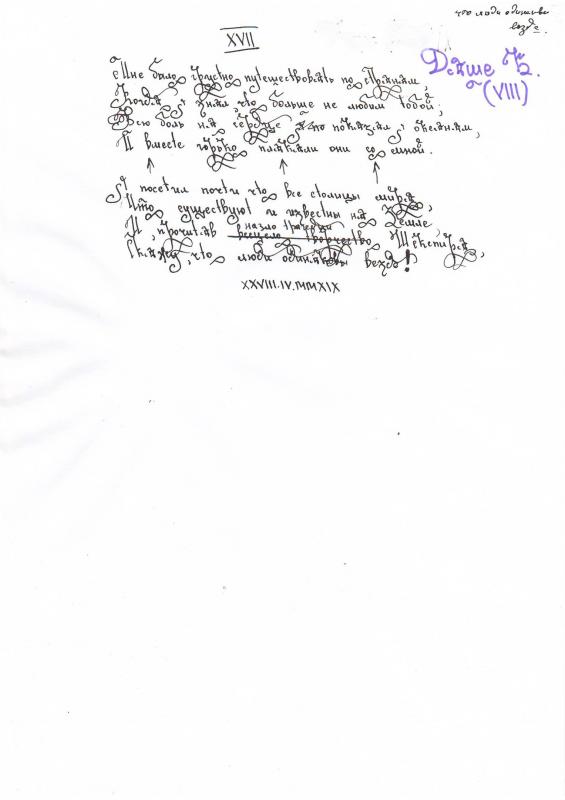 что люди одинаковы
везде.
XVII
Даше №2.
(VIII)
Мне было грустно путешествовать по странам,
Когда я знал, что больше не любим тобой;
Всю боль на сердце я по показал океанам,
И вместе горько плакали они со мной.
Я посетил почти что все столицы мира,
Что существуют и известны на Земле,
И, прочитав всецело творчество Шекспира,
назло трагедии
Скажу, что люди одинаковы везде!
XXVIII.IV.MMXIX